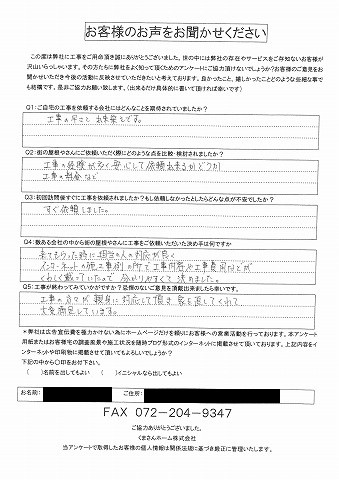 お客様のお声をお聞かせください
この度は弊社に工事をご用命頂き誠にありがとうございました。世の中には弊社の存在やサービスをご存知ないお客様が
沢山いらっしゃいます。その方たちに弊社をよく知って頂くためのアンケートにご協力頂けないでしょうか?お客様のご意見をお
聞かせいただき今後の活動に反映させていただきたいと考えております。良かったこと、嬉しかったことどのような些細な事で
も結構です。是非ご協力お願い致します。(出来るだけ具体的に書いて頂ければ幸いです)
Q1:ご自宅の工事を依頼する会社にはどんなことを期待されていましたか?
工事の手ごと 出来栄えです。
Q2:街の屋根やさんにご依頼いただく際にどのような点を比較・検討されましたか?
工事の経験が多く安心して依頼出来るかどうか
工事の料金など
Q3:初回訪問後すぐに工事を依頼されましたか?もし依頼しなかったとしたらどんな点が不安でしたか?
すぐ依頼しました。
Q4:数ある会社の中から街の屋根やさんに工事をご依頼いただいた決め手は何ですか
来てもらった時に担当の人の対応が良く
インターネットの施工事例の所で工事内容や工事費用などが
くわしく載っていたので 分かりやすくて 決めました。
Q5:工事が終わってみていかがですか?忌憚のないご意見を頂戴出来ましたら幸いです。
工事の方々が 親身に対応して頂き 家を直してくれて
大変満足しています。
*弊社は広告宣伝費を極力かけない為にホームページだけを頼りにお客様への営業活動を行っております。本アンケート
用紙またはお客様宅の調査風景や施工状況を随時ブログ形式のインターネットに掲載させて頂いております。上記内容をイ
ンターネットや印刷物に掲載させて頂いてもよろしいでしょうか?
下記の中から〇印をお付下さい。
( )名前を出してもよい ( )イニシャルなら出してもよい
お名前: ご住所:
FAX 072-204-9347
ご協力ありがとうございました。
くまさんホーム株式会社
当アンケートで取得したお客様の個人情報は関係法規に基づき厳正に管理いたします。